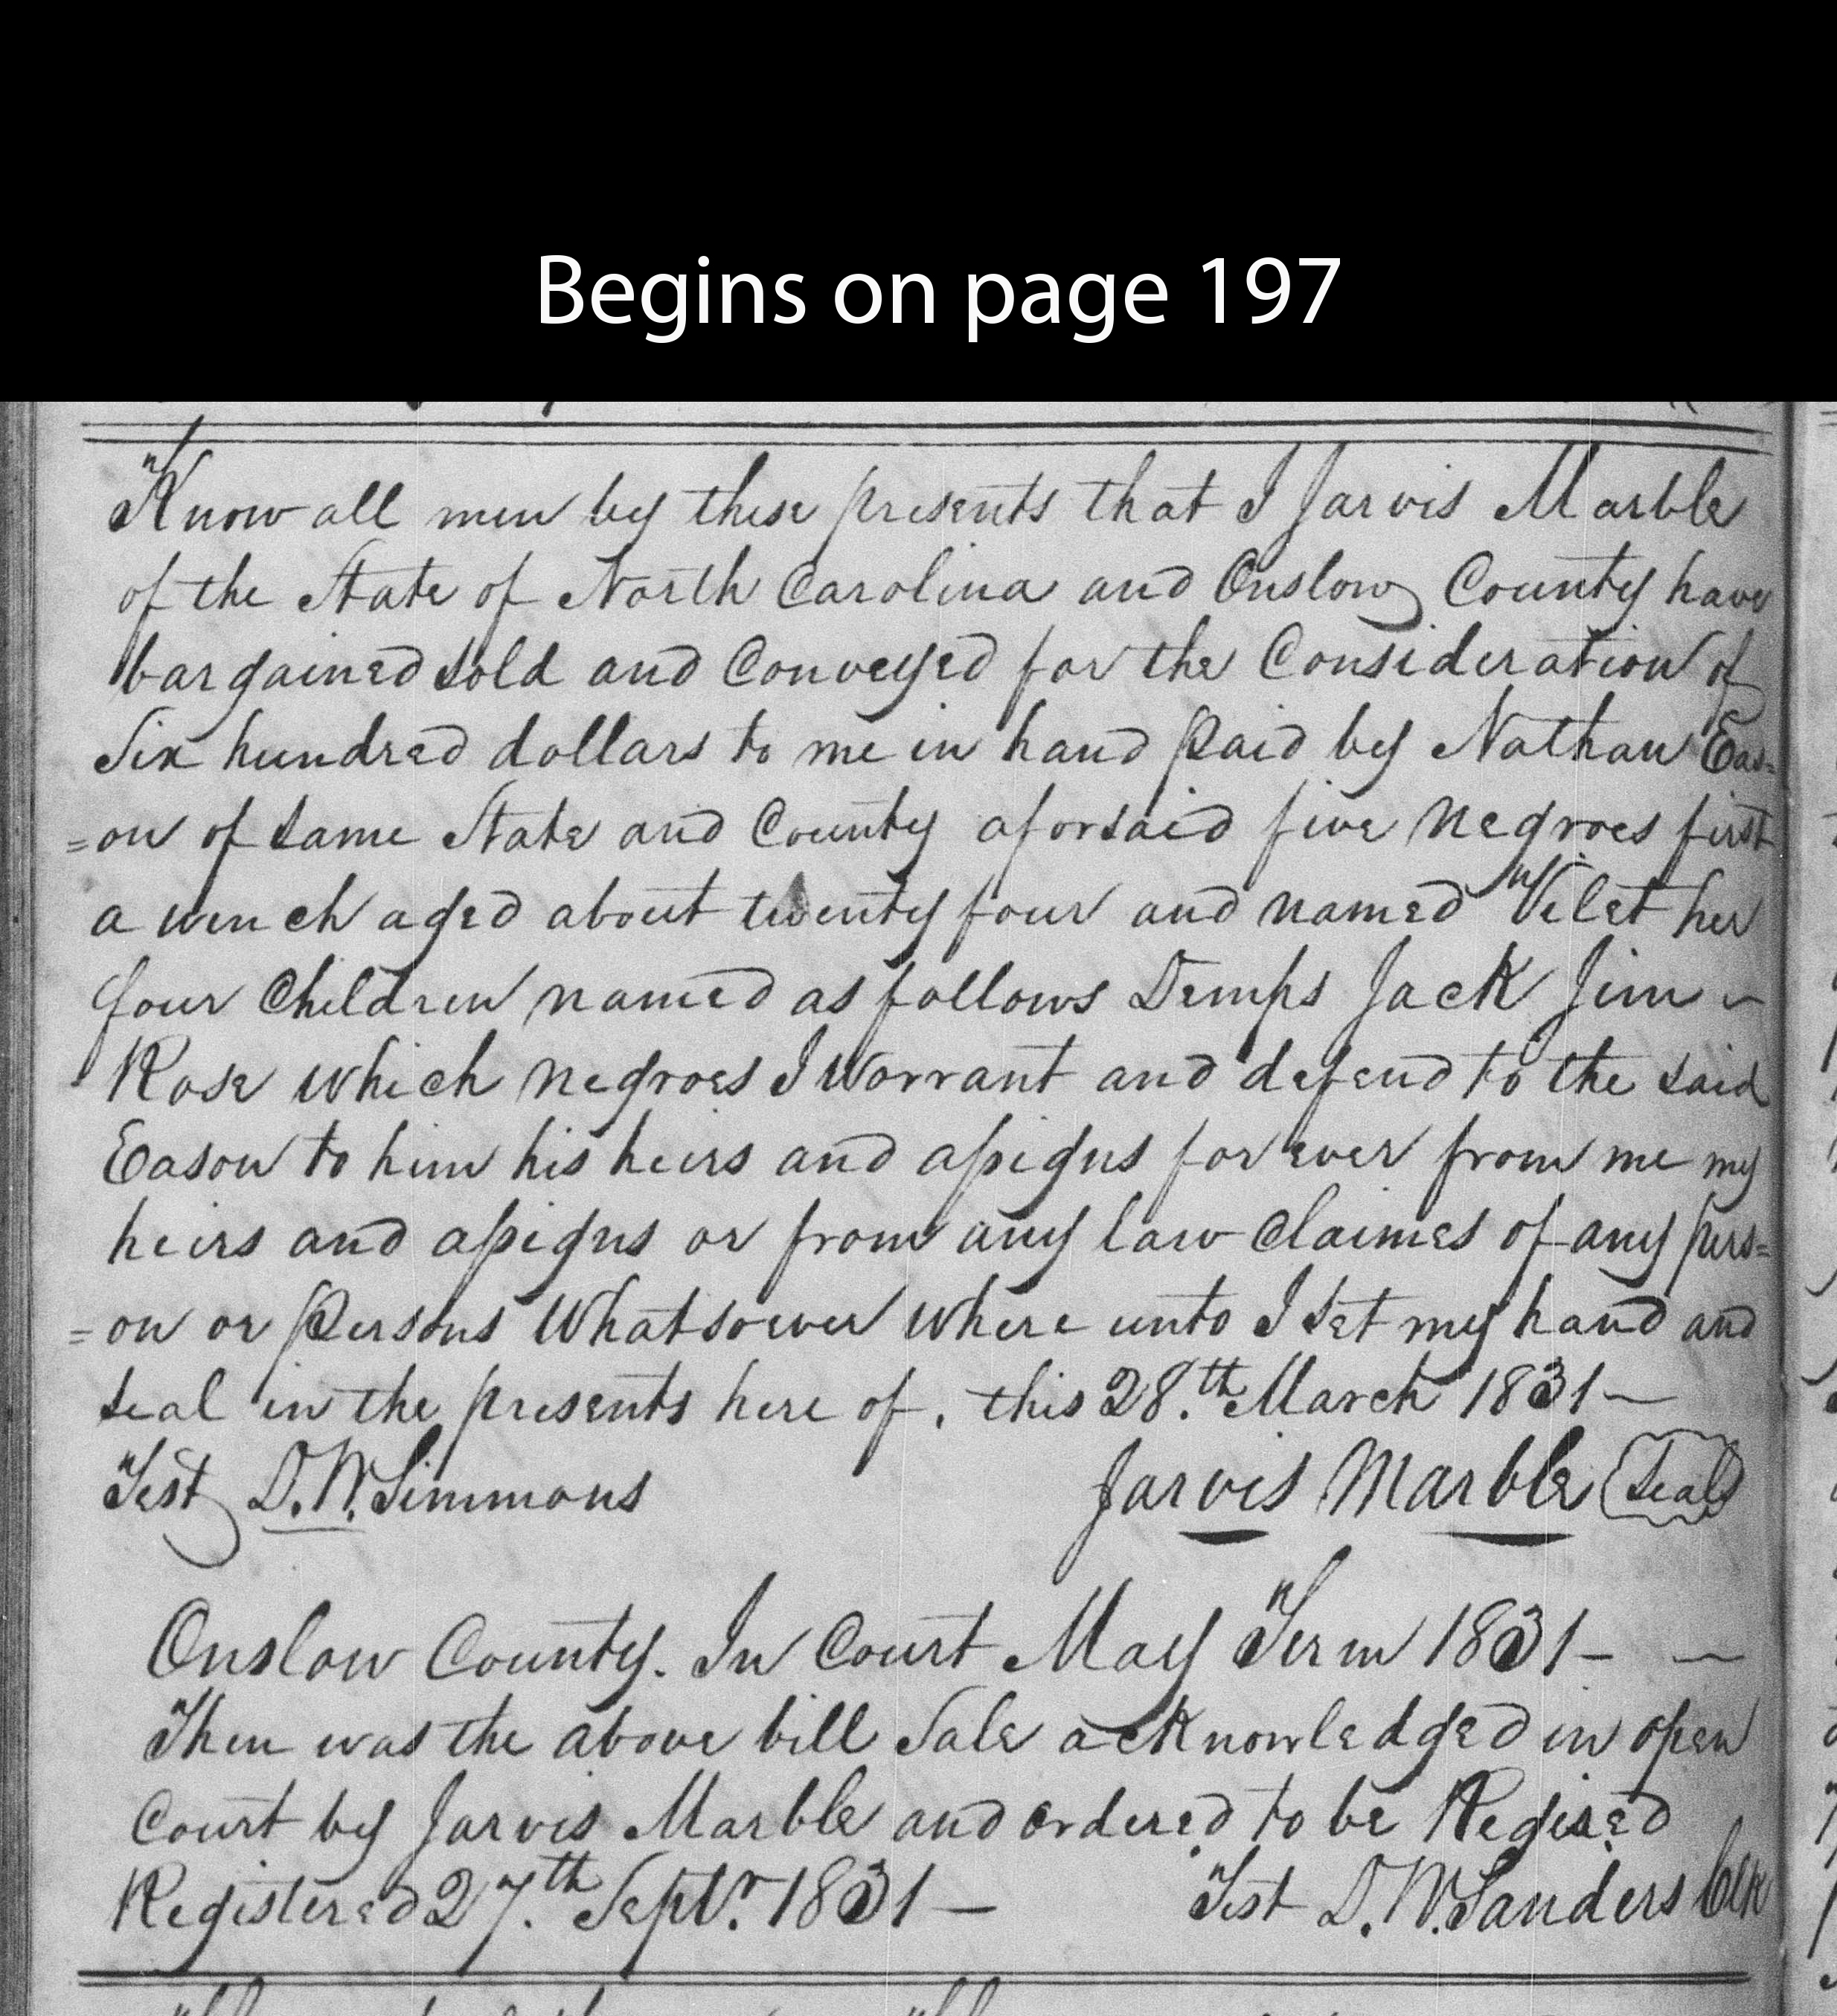 Begins on page 197
Know all men by these presents that I Jarvis Marble
of the State of North Carolina and Onslow County have
bargained sold and Conveyed for the Consideration of
Six hundred dollars to me in hand Paid by Nathan Eas=
=on of same State and County aforsaid five Negroes first
a wench aged about twenty four and named Vilet her
four Children named as follows Demps Jack Jim ~
Rose which negroes I Worrant and defend to the said
Eason to him his heirs and assigns for ever from me my
heirs and assigns or from any law Claimes of any pers=
=on or Persons Whatsoever where unto I set my hand and
seal in the presents here of, this 28.th March 1831—
Test D. W. Simmons Jarvis Marble (Seal)
Onslow County. In Court May Term 1831— —
Then was the above bill Sale acknowledged in open
Court by Jarvis Marble and ordered to be Regised
Registered 27.th Septr. 1831— Test D. W. Sanders Clk